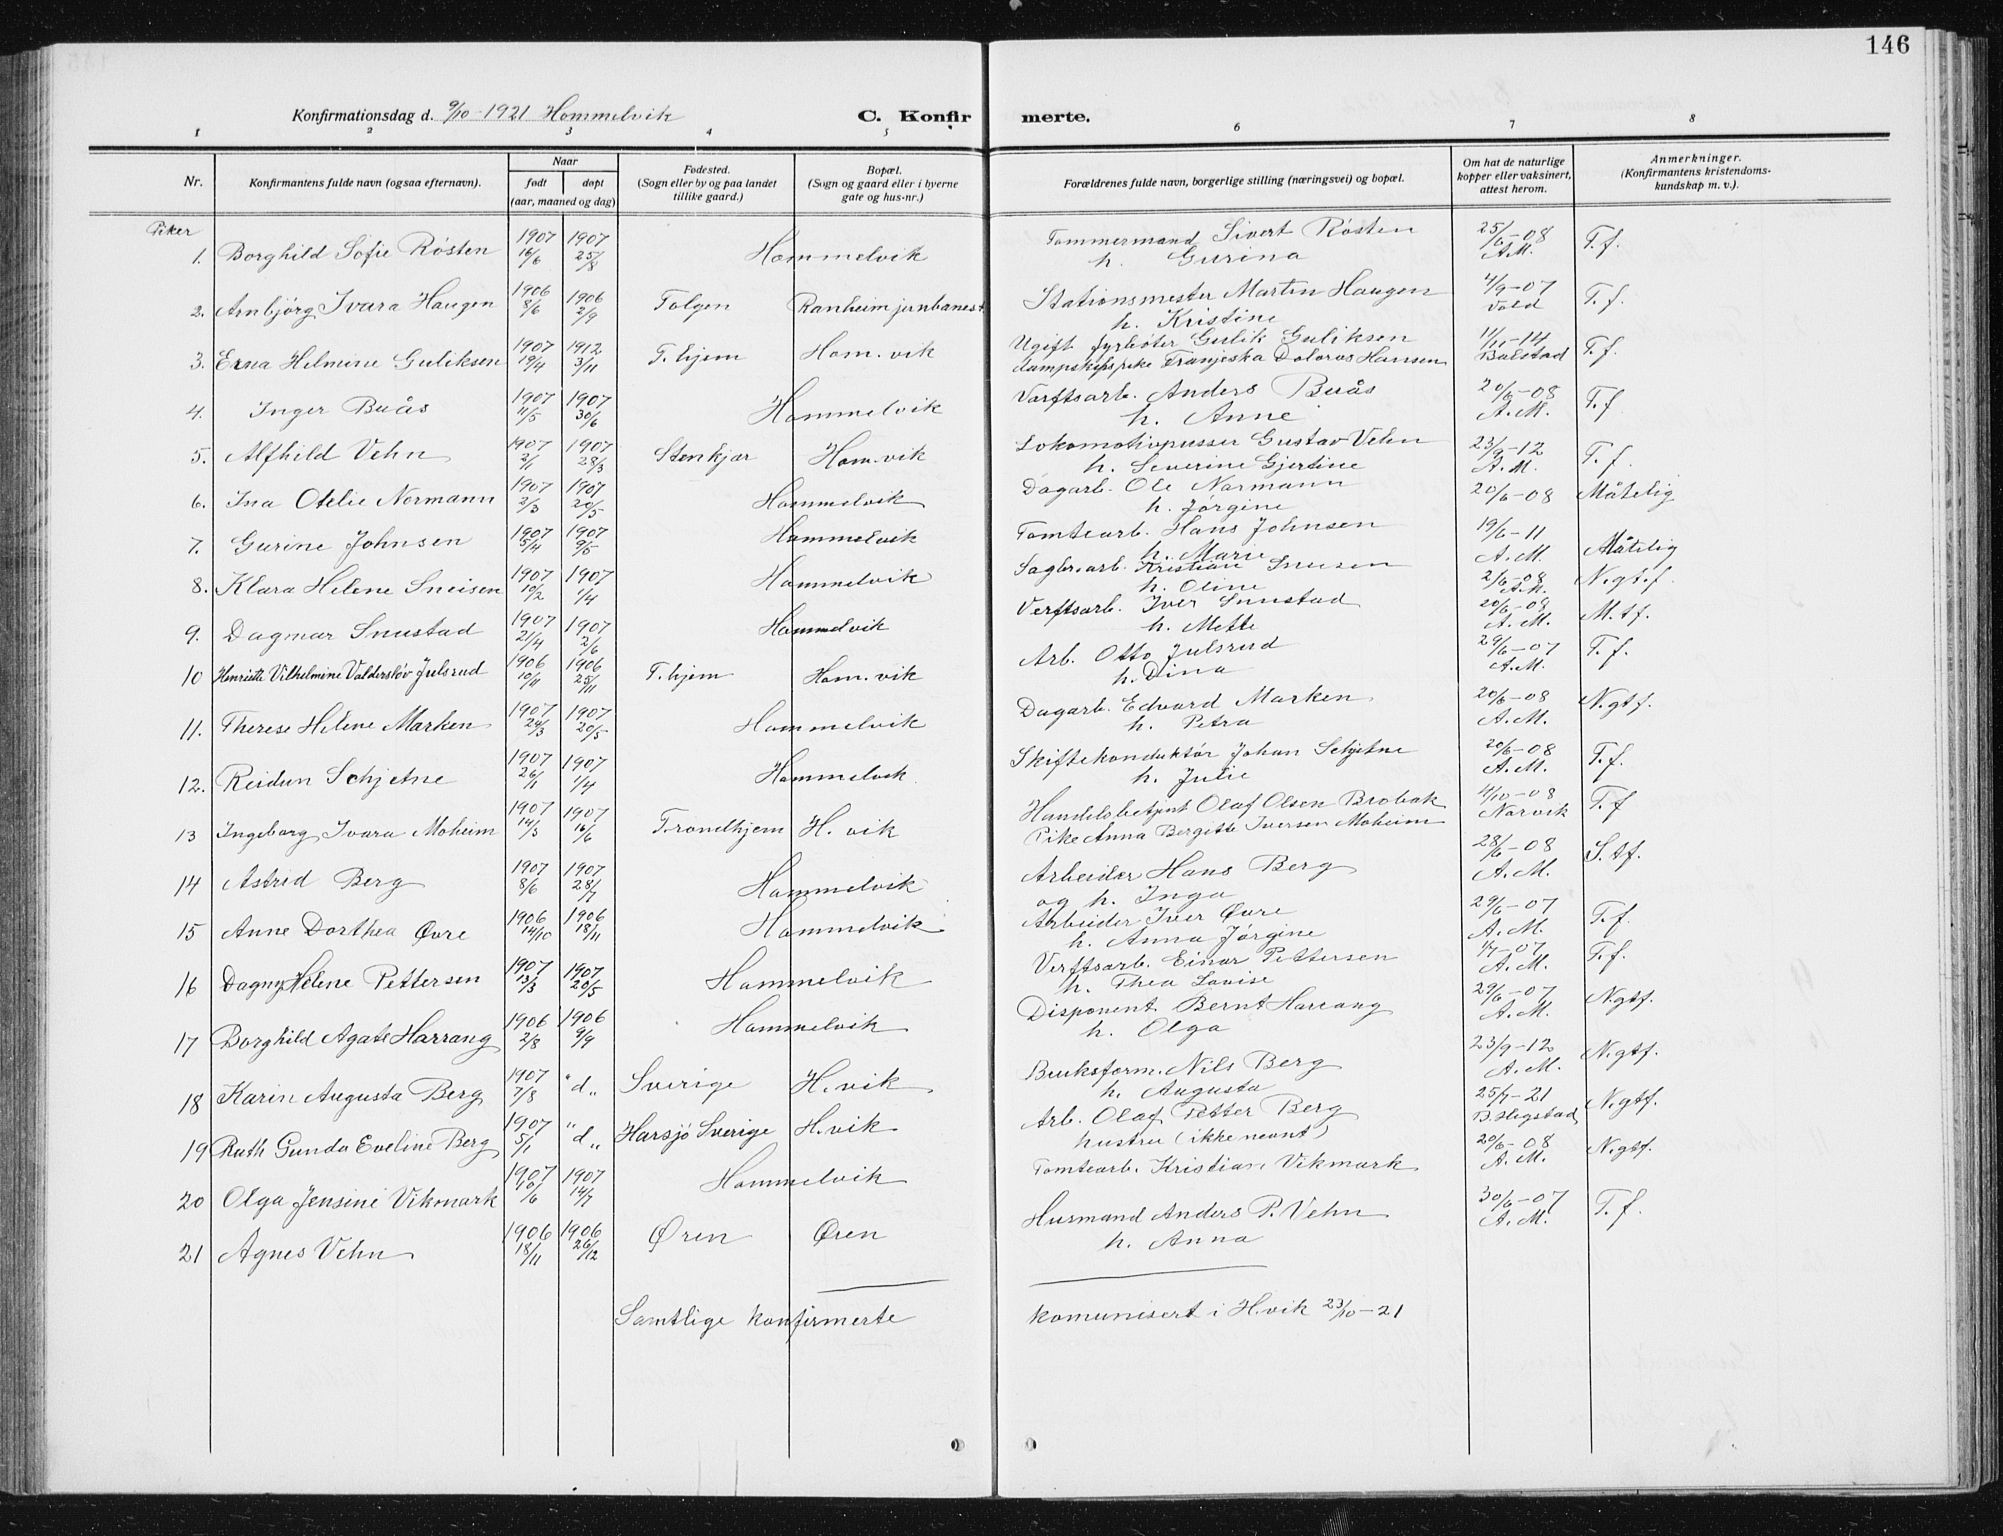 146
Konfirmationsdag d. 9/10-1921 Hommelvik C. Konfirmerte.
1 2 3 4 5 6 7 8
Nr. Konfirmantens fulde navn (ogsaa efternavn). Naar født døpt (aar, maaned og dag) Fødested. (Sogn eller by og paa landet tillike gaard.) Bopæl. (Sogn og gaard eller i byerne gate og hus-nr.) Forældrenes fulde navn, borgerlige stilling (næringsvei) og bopæl. Om hat de naturlige kopper eller vaksinert, attest herom. Anmerkninger. (Konfirmantens kristendomskundskap m. v.).
Piker
1. Borghild Sofie Røsten 1907 16/6 1907 25/8 Hommelvik Tømmermand Sivert Røsten h. Gurina 25/6-08 A.M. T.f.
2. Arnbjørg Ivara Haugen 1906 8/6 1906 2/9 Tolgen Ranheim jernbanest. Stationsmester Martin Haugen h. Kristine 4/9-07 Vold T.f.
3. Erna Helmine Guliksen 1907 19/4 1912 3/11 T.hjem Hom.vik Ugift fyrbøter Gulik Guliksen dampskipspike Franjeska Dolorus Hansen 11/11-14 Balstad T.f.
4. Inger Buås 1907 11/5 1907 30/6 Hommelvik Værftsarb. Anders Buås h. Anne 20/6-08 A.M. T.f
5. Alfhild Vehn 1907 2/1 1907 28/3 Stenkjær Hom.vik Lokomotivpusser Gustav Vehn h. Severine Gjertine 23/9-12 A.M. T.f.
6. Ina Otelie Normann 1907 2/3 1907 20/5 Hommelvik Dagarb. Ole Normann h. Jørgine 20/6-08 Måtelig
7. Gurine Johnsen 1907 5/4 1907 9/5 Hommelvik Tomtearb. Hans Johnsen h. Marie 19/6-11 A.M. Måtelig
8. Klara Helene Sneisen 1907 10/2 1907 1/4 Hommelvik Sagbr.arb. Kristian Sneisen h. Oline 2/6-08 A.M. N.gt.f.
9. Dagmar Snustad 1907 21/4 1907 2/6 Hommelvik Verftsarb. Iver Snustad h. Mette 20/6-08 A.M. M.tf.
10 Henriette Vilhelmine Valdersløv Julsrud 1906 10/11 1906 25/11 T.hjem Hom.vik Arb. Otto Julsrud h. Dina 29/6-07 A.M. T.f.
11. Therese Helene Marken 1907 24/3 1907 20/5 Hommelvik Dagarb. Edvard Marken h. Petra 20/6-08 A.M. N.gtf.
12. Reidun Schjetne 1907 26/1 1907 1/4 Hommelvik Skiftekonduktør Johan Schjetne h. Julie 20/6-08 A.M. T.f.
13 Ingeborg Ivara Moheim 1907 14/3 1907 16/6 Trondhjem H.vik Handelsbetjent Olaf Olsen Brobak Pike Anna Bergitte Iversen Moheim 4/10-08 Narvik T.f
14 Astrid Berg 1907 8/6 1907 28/7 Hommelvik Arbeider Hans Berg og h. Inga 28/6-08 A.M. S.tf.
15 Anne Dorthea Øvre 1906 14/10 1906 18/11 Hommelvik Arbeider Iver Øvre h. Anna Jørgine 29/6-07 A.M. T.f.
16 Dagny Helene Pettersen 1907 13/3 1907 20/5 Hommelvik Verftsarb. Einar Pettersen h. Thea Lovise 1/7-07 A.M. T.f.
17 Borghild Agate Harrang 1906 2/8 1906 9/9 Hommelvik Disponent Bernt Harrang h. Olga 29/6-07 A.M. N.gtf.
18 Karin Augusta Berg 1907 7/8 " d " Sverige H.vik Bruksform. Nils Berg h. Augusta 23/9-12 A.M. N.gtf.
19 Ruth Gunda Eveline Berg 1907 5/1 " d " Harsjö Sverige H.vik Arb. Olaf Petter Berg hustru (ikke nevnt) 25/7-21 B.Hegstad N.gtf.
20 Olga Jensine Vikmark 1907 10/6 1907 14/7 Hommelvik Tomtearb. Kristian Vikmark 20/6-08 A.M. N.gtf.
21 Agnes Vehn 1906 18/11 1906 26/12 Øren Øren Husmand Anders P. Vehn h. Anna 30/6-07 A.M. T.f.
Samtlige konfirmerte komunisert i H.vik 23/10-21